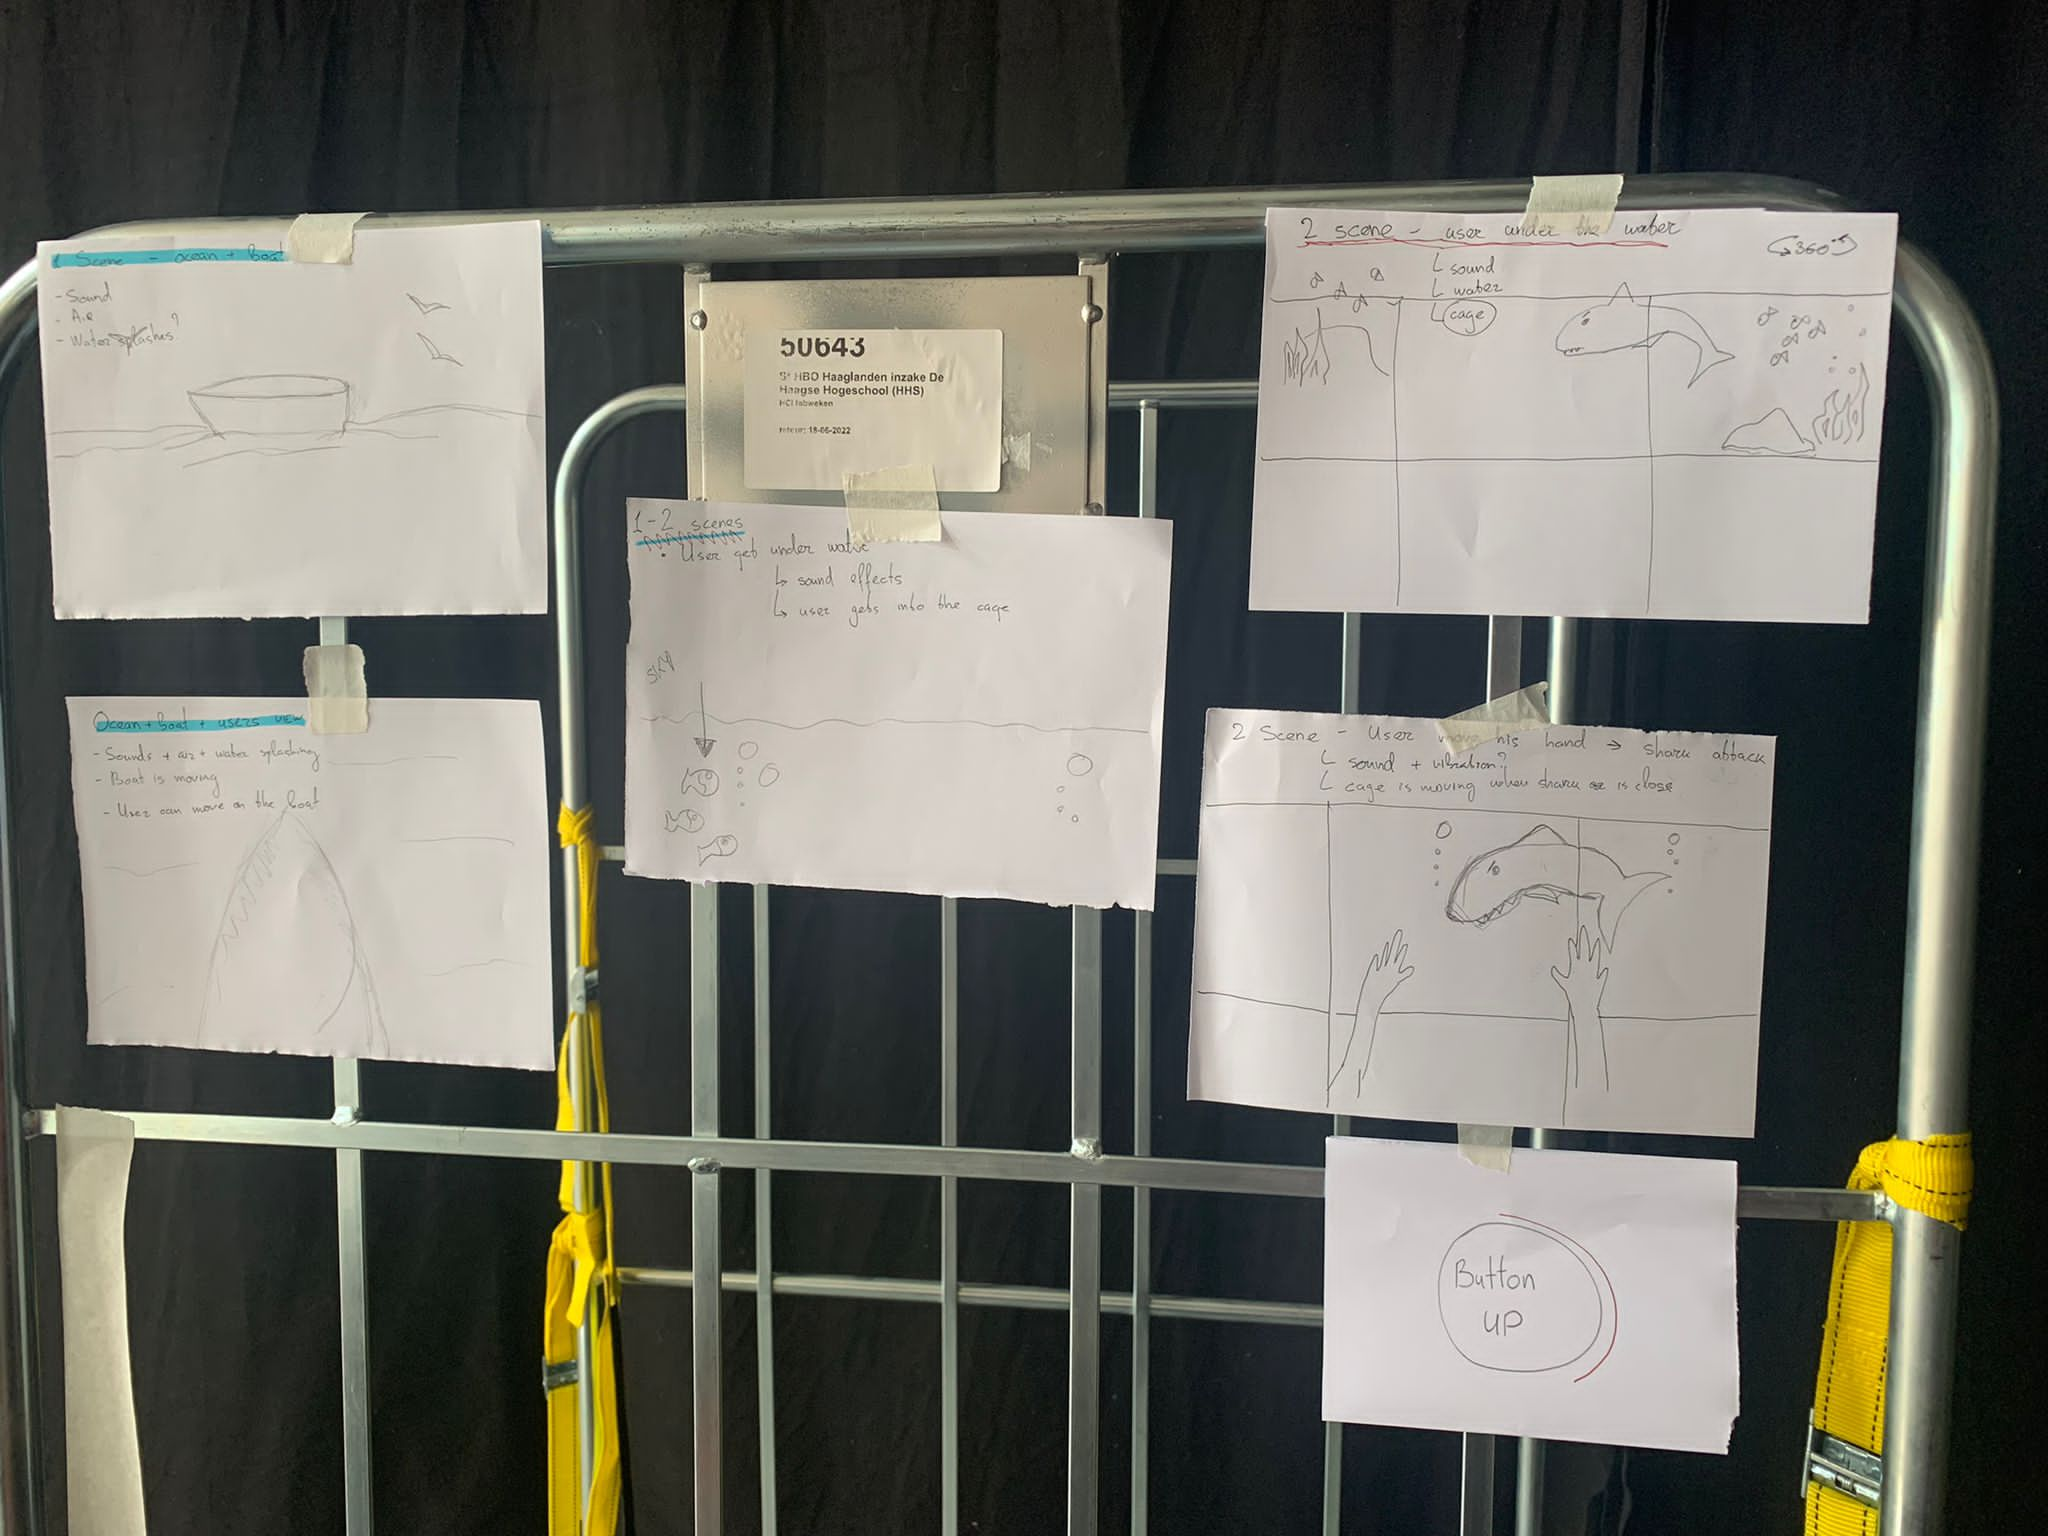 1 Scene - ocean + Boat
- Sound
- Air
- Water splashes?
Ocean + boat + users view
- Sounds + air + water splashing
- Boat is moving
- User can move on the boat
50643
St HBO Haaglanden inzake De
Haagse Hogeschool (HHS)
HCI labweken
retour: 18-06-2022
1-2 scenes
• User get under water
↳ sound effects
↳ user gets into the cage
SKY
2 scene - user under the water
360°
L sound
L water
L cage
2 Scene - User move his hand → shark attack
L sound + vibration?
L cage is moving when shark is close
Button
UP